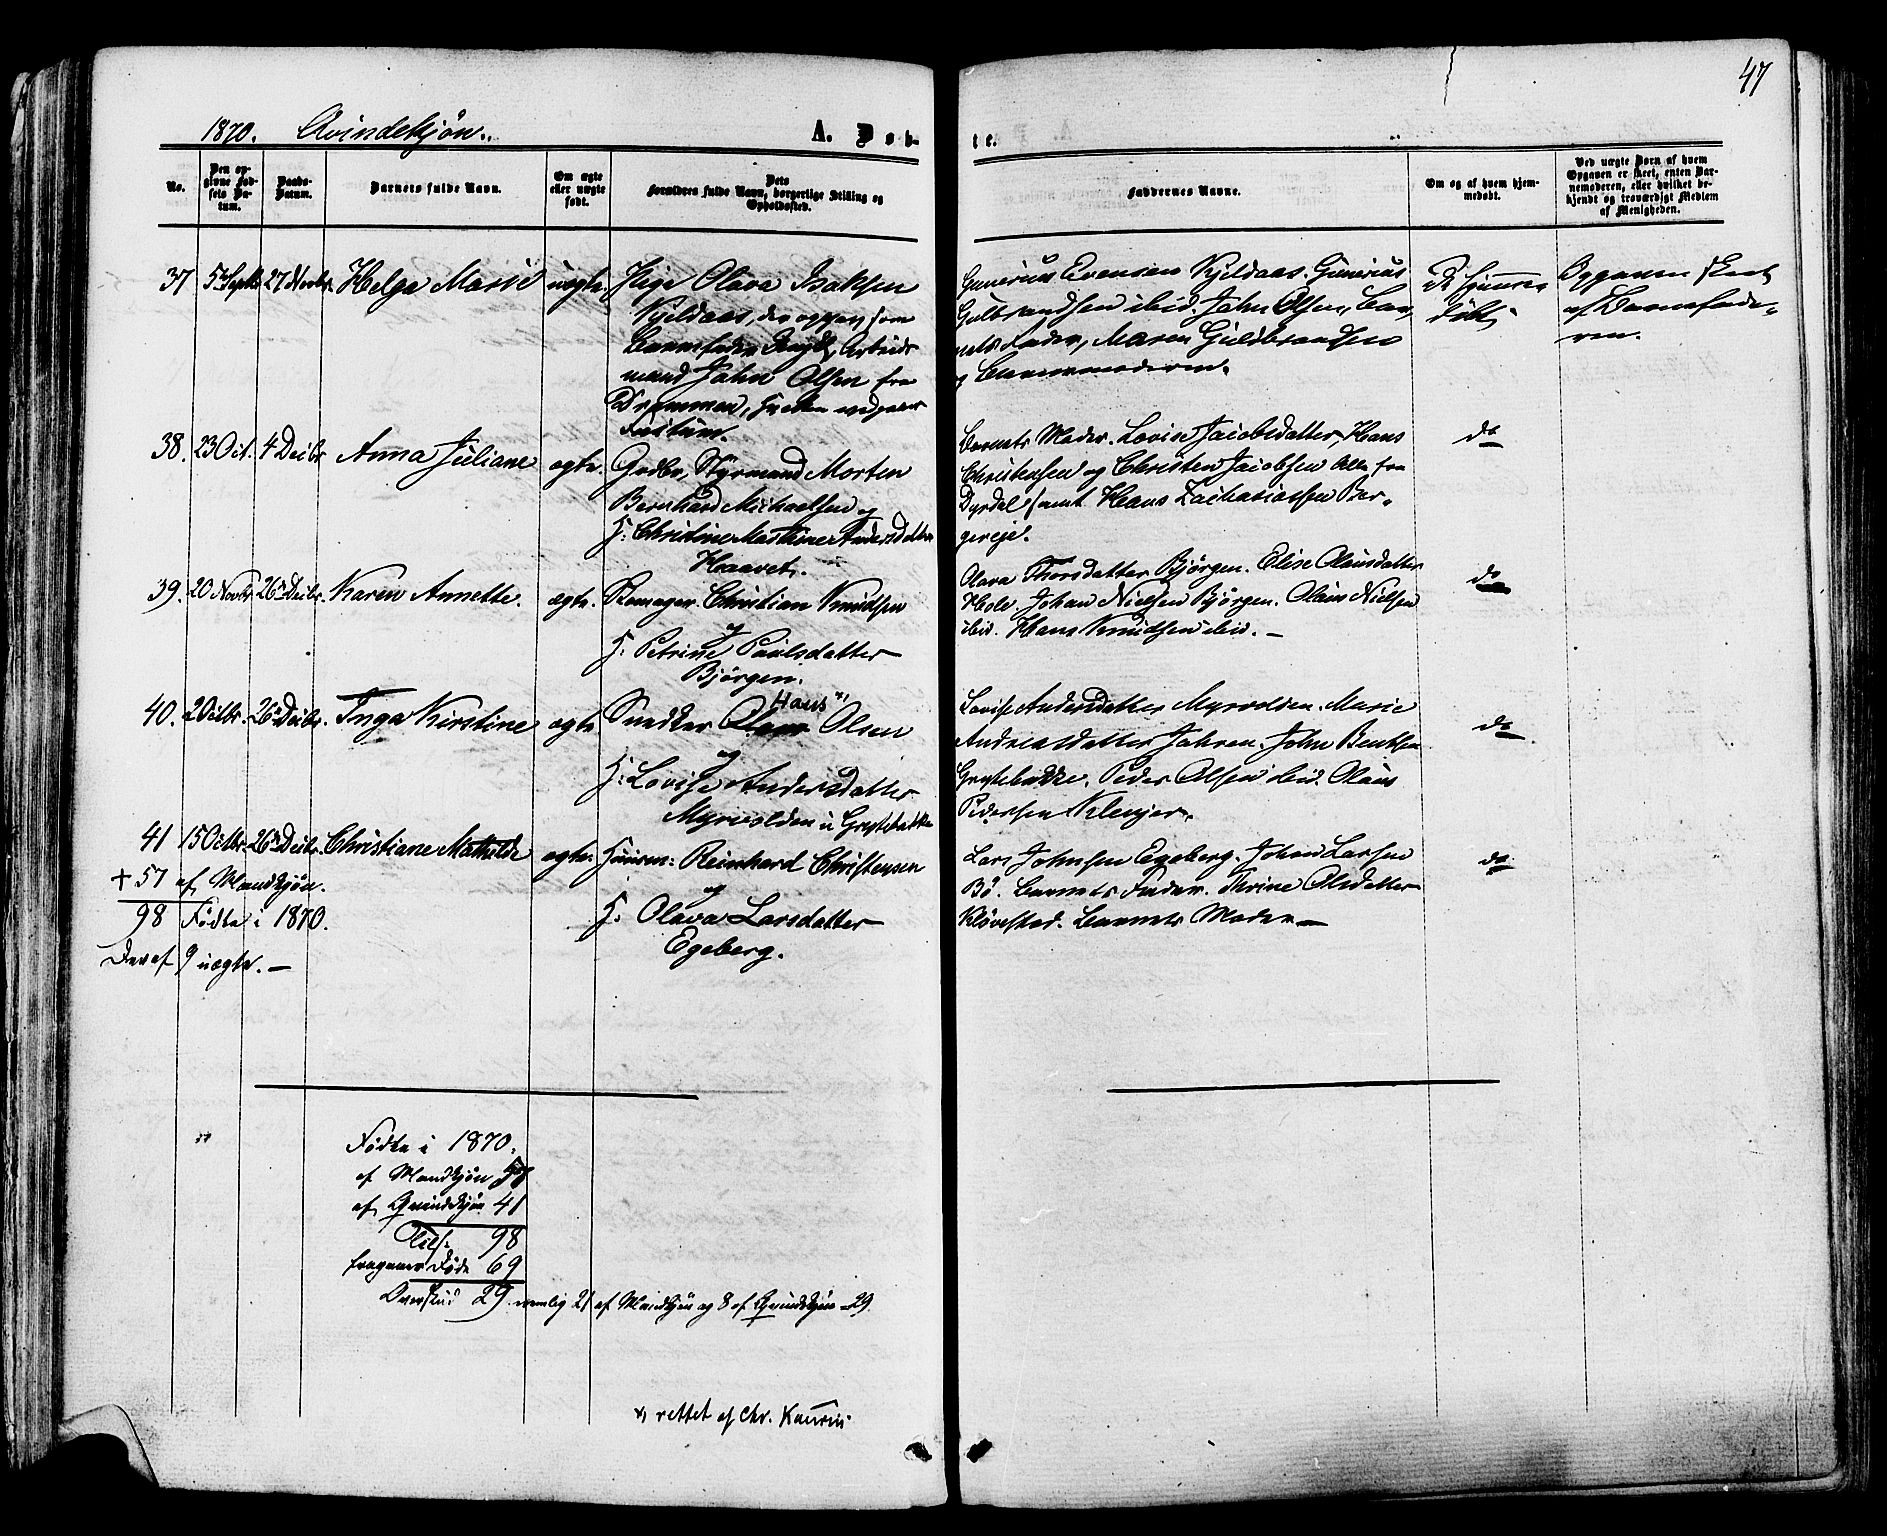 47
1870. Qvindekjøn.
A. Døb-
te.
No.
Den op-
givne Fød-
sels Da-
tum.
Daabs-
Datum.
Barnets fulde Navn.
Om ægte
eller uægte
født.
Dets
Forældres fulde Navn, borgerlige Stilling og
Opholdssted.
Faddernes Navne.
Om og af hvem hjem-
medøbt.
Ved uægte Børn af hvem
Opgaven er skeet, enten Bar-
nemoderen, eller hvilket be-
kjendt og troværdigt Medlem
af Menigheden.
37 5 Septbr 27 Novbr. Helga Marie uægte. Pige Olava Isaksen
Kjeldaas, der opgav som
Barnefader Arbeids
mand John Olsen fra
Drammen,
Gunerius Evensen Kjeldaas. Gunerius
Gulbrandsen ibid. John Olsen, Bar-
nets Fader, Maren Guldbrandsen
og Barnemoderen.
Ei hjemme-
døbt.
Opgaven skeet
af Barnefade-
ren.
38. 23 Oct. 4 Decbr Anna Juliane ægte. Gudbr, Styrmand Morten
Bernhard Michaelsen og
H: Christine Mathine Andersdatter
Haavet.
Barnets Moder. Lovise Jacobsdatter, Hans
Christensen og Christen Jacobsen Alle fra
Dyrdal samt Hans Zachariassen Ber-
gereje.
do
39. 20 Novbr 26 Decbr. Karen Annette. ægte. Skomager. Christian Knudsen
og
H: Petrine Paulsdatter
Bjørgen.
Olava Thorsdatter Bjørgen. Elise Olausdatter
Hole. Johan Nielsen Bjørgen. Olaus Nielsen
ibid. Hans Knudsen ibid. –
do
40. 2 Octbr. 26 Decbr. Inga Kirstine ægte Snedker Hans x) Olsen
og
H: Lovise Andersdatter
Myrvolden u Grystebakke
Lovise Andersdatter Myrvolden. Marie
Andreasdatter Jahren. John Bentsen
Grystebakke. Peder Olsen ibid. Olaus
Pedersen Klevjer.
do
41 15 Octbr. 26 Decbr. Christiane Mathilde ægte. Huusm: Reinhard Christensen
og
H: Olava Larsdatter
Egeberg.
Lars Johnsen Egeberg. Johan Larsen
Bø. Barnets Fader. Thrine Olsdatter
Kløvestad. Barnets Moder –
do
+ 57 af Mandkjøn.
98 Fødte i 1870.
Deraf 9 uægte. –
Fødte i 1870.
af Mandkjøn 57
af Qvindekjøn 41
Tils. 98
fragaaer Døde 69
Overskud 29. nemlig 21 af Mandkjøn og 8 af Qvindekjøn = 29.
x) rettet af Chr. Kaurin.